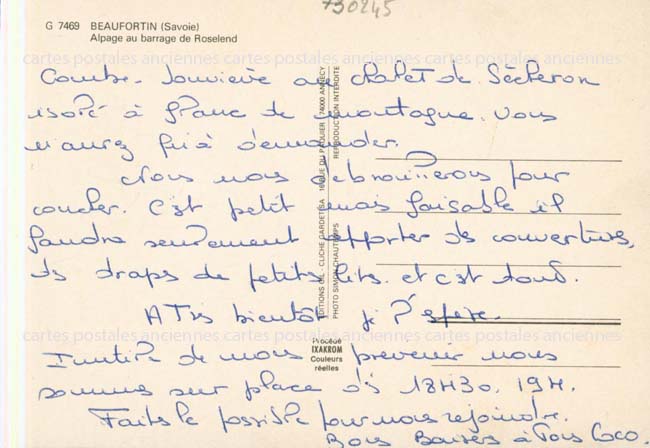 730245
G 7469 BEAUFORTIN (Savoie)
Alpage au barrage de Roselend
cartes postales anciennes cartes postales anciennes cartes postales anciennes
Combe - Jouvière au chalet de Sécheron
isolé à flanc de montagne. Vous
n'aurez qu'à demander.
Nous nous débrouillerons pour
coucher. C'est petit mais faisable il
faudra seulement apporter des couvertures,
des draps de petits lits. et c'est tout.
A Très bientôt je l'espère.
cartes postales anciennes cartes postales anciennes cartes postales anciennes
Inutile de nous prévenir nous
sommes sur place dès 18H30. 19H.
Faites le possible pour nous rejoindre.
Bons Baisers à Tous Coco.
EDITIONS GIL - CLICHÉ GARDET 16 RUE DU PAQUIER 74000 ANNECY
PHOTO SIMON CHAUTEMPS REPRODUCTION INTERDITE
Procédé
IXAKROM
Couleurs
réelles